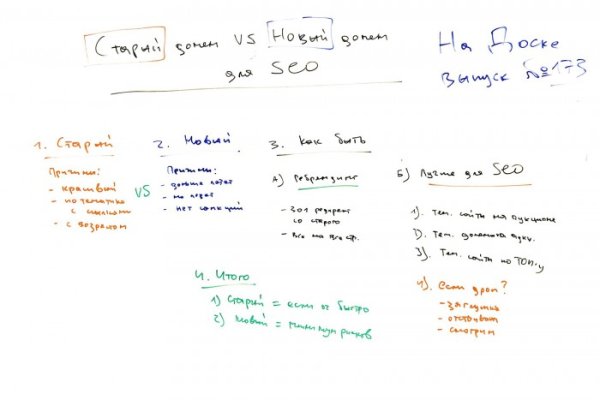 Старый домен VS Новый домен
для SEO
На Доске
выпуск №173
1. Старый
Причины:
- красивый
- по тематике
с ссылками
- с возрастом
VS
2. Новый
Причины:
- дольше
- нет санкций
3. Как быть
А) Ребрендинг
- 301 редирект
со старого
- все на все стр.
Б) Лучше для SEO
1). Тем. сайты на аукционе
2). Тем. домена аукц.
3). Тем. сайты по ТОП-у
4). Если дроп?
- заглушка
- отстаиваем
- смотрим
4. Итого
1) Старый = если оч быстро
2) Новый = минимум рисков